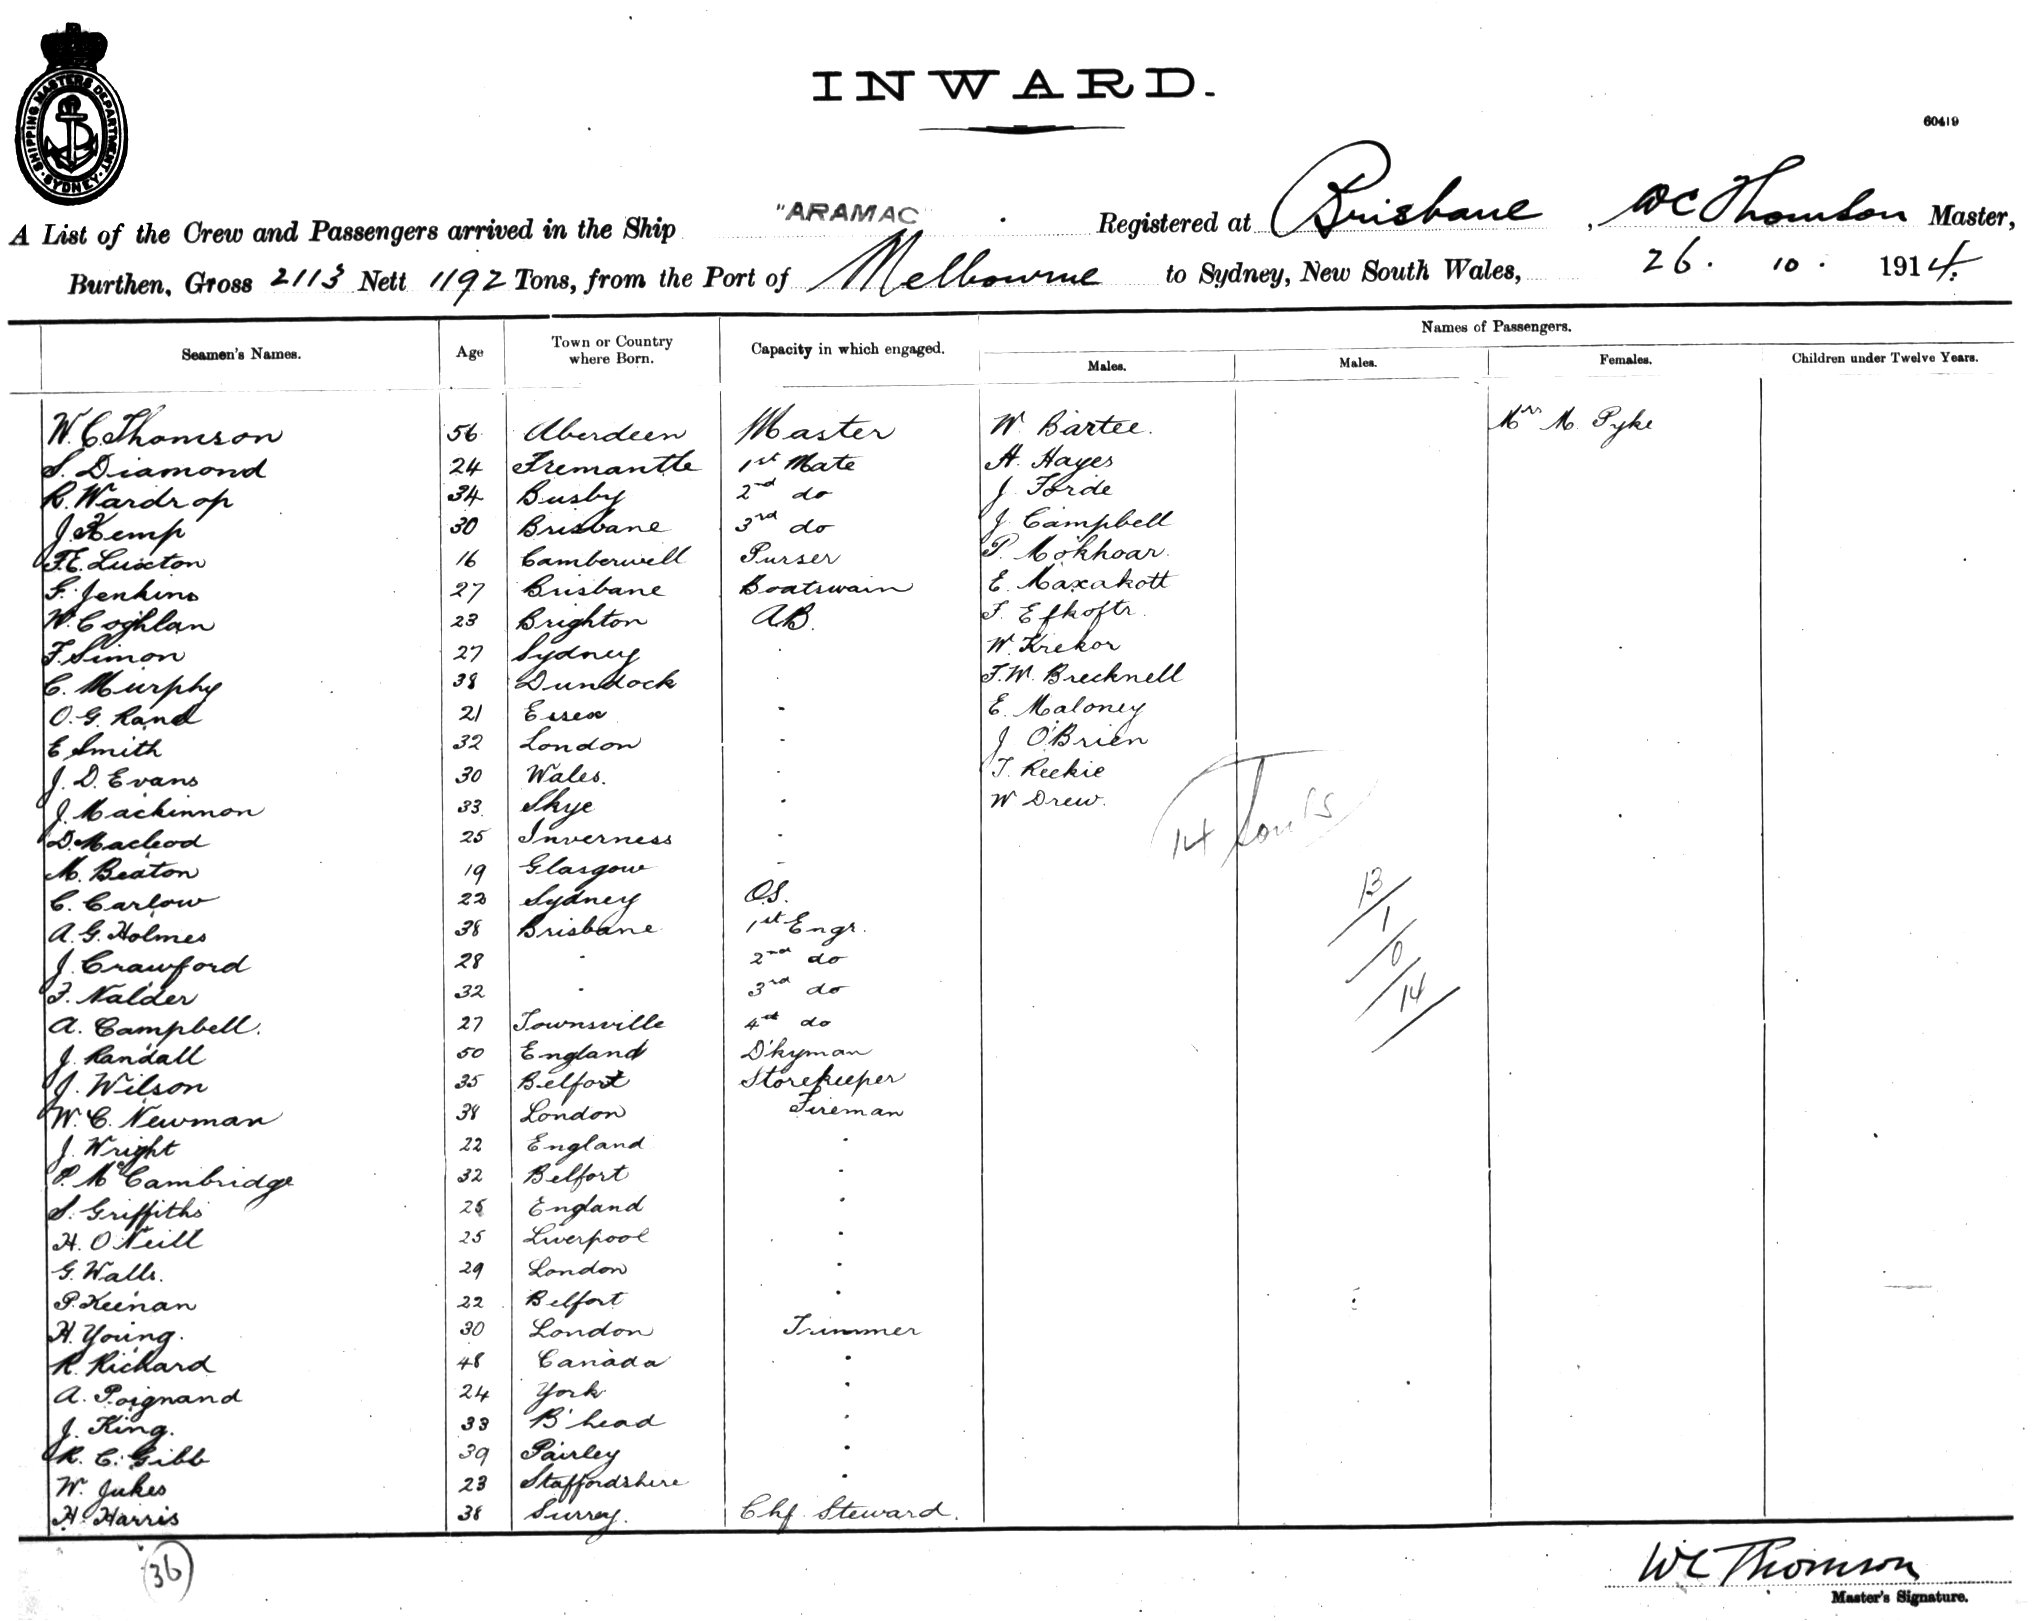 SHIPPING MASTERS DEPARTMENT · SYDNEY ·
INWARD.
60419
A List of the Crew and Passengers arrived in the Ship "ARAMAC" Registered at Brisbane, WC Thomson Master,
Burthen, Gross 2113 Nett 1192 Tons, from the Port of Melbourne to Sydney, New South Wales, 26. 10. 1914.
Names of Passengers.
Seamen's Names. Age Town or Country where Born. Capacity in which engaged. Males. Males. Females. Children under Twelve Years.
W. C. Thomson 56 Aberdeen Master W. Bartee. Mrs M. Pyke
S. Diamond 24 Fremantle 1st Mate H. Hayes
R. Wardrop 34 Busby 2nd do J. Forde
J. Kemp 30 Brisbane 3rd do J. Campbell
F.E. Luxton 16 Camberwell Purser P. Mokhoar
F. Jenkins 27 Brisbane Boatswain E. Maxakott
W. Coghlan 23 Brighton AB. F. Efkoftr.
F. Simon 27 Sydney " W. Krekor
C. Murphy 38 Dundock " F.W. Brecknell
O. G. Rand 21 Essex " E. Maloney
E Smith 32 London " J O'Brien
J. D. Evans 30 Wales. " T. Reekie
J. Mackinnon 33 Skye " W Drew.
D. Macleod 25 Inverness "
14 Souls
M. Beaton 19 Glasgow "
C. Carlow 22 Sydney O.S. 13/
A. G. Holmes 38 Brisbane 1st Engr. 1/
J. Crawford 28 " 2nd do 0/
F. Nalder 32 " 3rd do 14/
A. Campbell. 27 Townsville 4th do
J. Randall 50 England D'kyman
J. Wilson 35 Belfast Storekeeper
W. C. Newman 38 London Fireman
J. Wright 22 England "
P. McCambridge 32 Belfast "
S. Griffiths 25 England "
H. O Neill 25 Liverpool "
G. Walls. 29 London "
P. Keenan 22 Belfast "
H. Young. 30 London Trimmer
R. Richard 48 Canada "
A. Poignand 24 York "
J. King. 33 B'head "
R. C. Gibb 39 Pairley "
W. Jukes 23 Staffordshire "
H. Harris 38 Surrey. Chf Steward.
36
WC Thomson
Master's Signature.